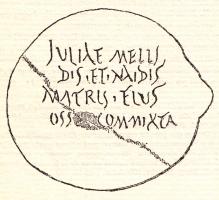 JULIAE MELIS
DIS · ET · NAIDIS
MATRIS · EIUS
OSS COMMIXTA